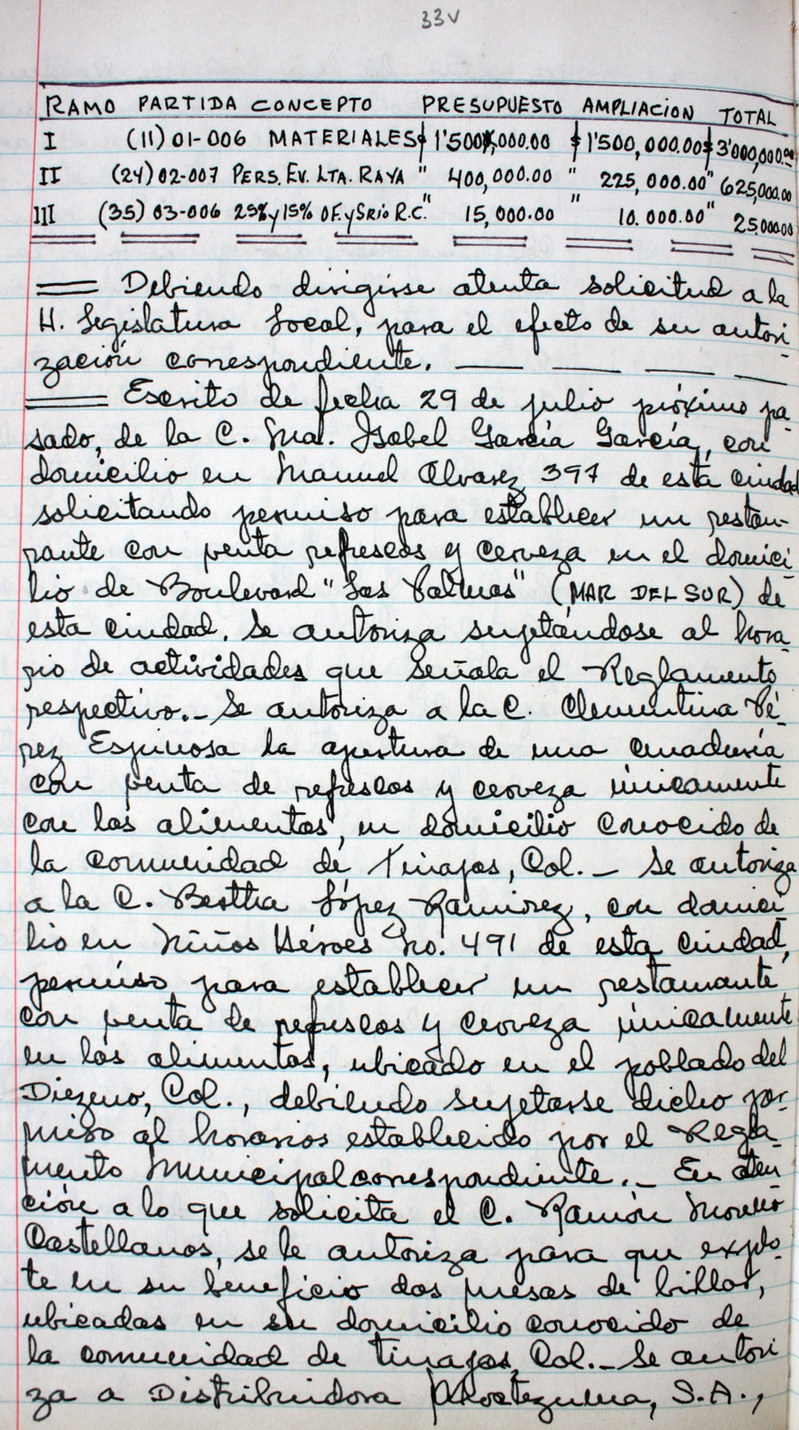 33v
RAMO PARTIDA CONCEPTO PRESUPUESTO AMPLIACION TOTAL
I (11) 01-006 MATERIALES $ 1'500,000.00 $ 1'500,000.00 $ 3'000,000.00
II (24) 02-007 PERS. EV. LTA. RAYA " 400,000.00 " 225,000.00 " 625,000.00
III (35) 03-006 25% y 15% OF. y SRIO R.C. " 15,000.00 " 10.000.00 " 25000.00
Debiendo dirigirse atenta solicitud a la
H. Legislatura Local, para el efecto de su autori
zación correspondiente.
Escrito de fecha 29 de julio próximo pa
sado, de la C. Ma. Isabel García García, con
domicilio en Manuel Alvarez 397 de esta ciudad
solicitando permiso para establecer un restau-
rante con venta refrescos y cerveza en el domici
lio de Boulevard "Las Palmas" (MAR DEL SUR) de
esta ciudad. Se autoriza sujetándose al hora
rio de actividades que señala el Reglamento
respectivo.- Se autoriza a la C. Clementina Pé-
rez Espinosa la apertura de una cenaduría
con venta de refrescos y cerveza únicamente
con los alimentos, en domicilio conocido de
la comunidad de Tinajas, Col.- Se autoriza
a la C. Bertha López Ramírez, con domici
lio en Niños Héroes No. 491 de esta ciudad,
permiso para establecer un restaurante
con venta de refrescos y cerveza únicamente
en los alimentos, ubicado en el poblado del
Diezmo, Col., debiendo sujetarse dicho per-
miso al horarios establecido por el Regla-
mento Municipal correspondiente.- En aten
ción a lo que solicita el C. Ramón Moreno
Castellanos, se le autoriza para que explo-
te en su beneficio dos mesas de billar,
ubicadas en su domicilio conocido de
la comunidad de Tinajas, Col.- Se autori
za a Distribuidora Moctezuma, S.A.,